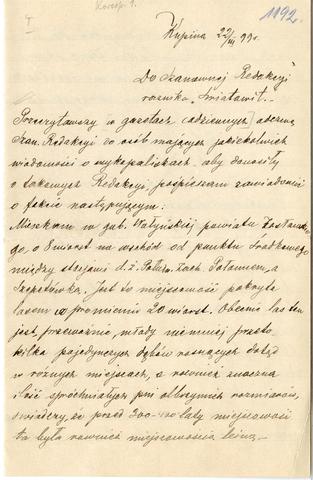 I
Koresp. 1.
1192.
Kupina 22/III 99 r.
Do Szanownej Redakcyi
rocznika „Światowit".
Przeczytawszy w gazetach (codziennych) odezwę
Szan. Redakcyi do osób mających jakiekolwiek
wiadomości o wykopaliskach, aby donosiły
o takowych Redakcyi, pośpieszam zawiadomić
o fakcie następującym:
Mieszkam w gub. Wołyńskiej powiatu Zasławskie-
go, o 8 wiorst na wschód od punktu środkowego
między stacjami d. ż. Połud. Zach. Połonnem, a
Szepetówką. Jest to miejscowość pokryta
lasem w promieniu 20 wiorst. Obecnie las ten
jest, przeważnie, młody niemniej przeto
kilka pojedynczych dębów rosnących dotąd
w różnych miejscach, a również znaczna
ilość spróchniałych pni olbrzymich rozmiarów,
świadczy, że przed 300-400 laty miejscowość
ta była również miejscowością leśną.